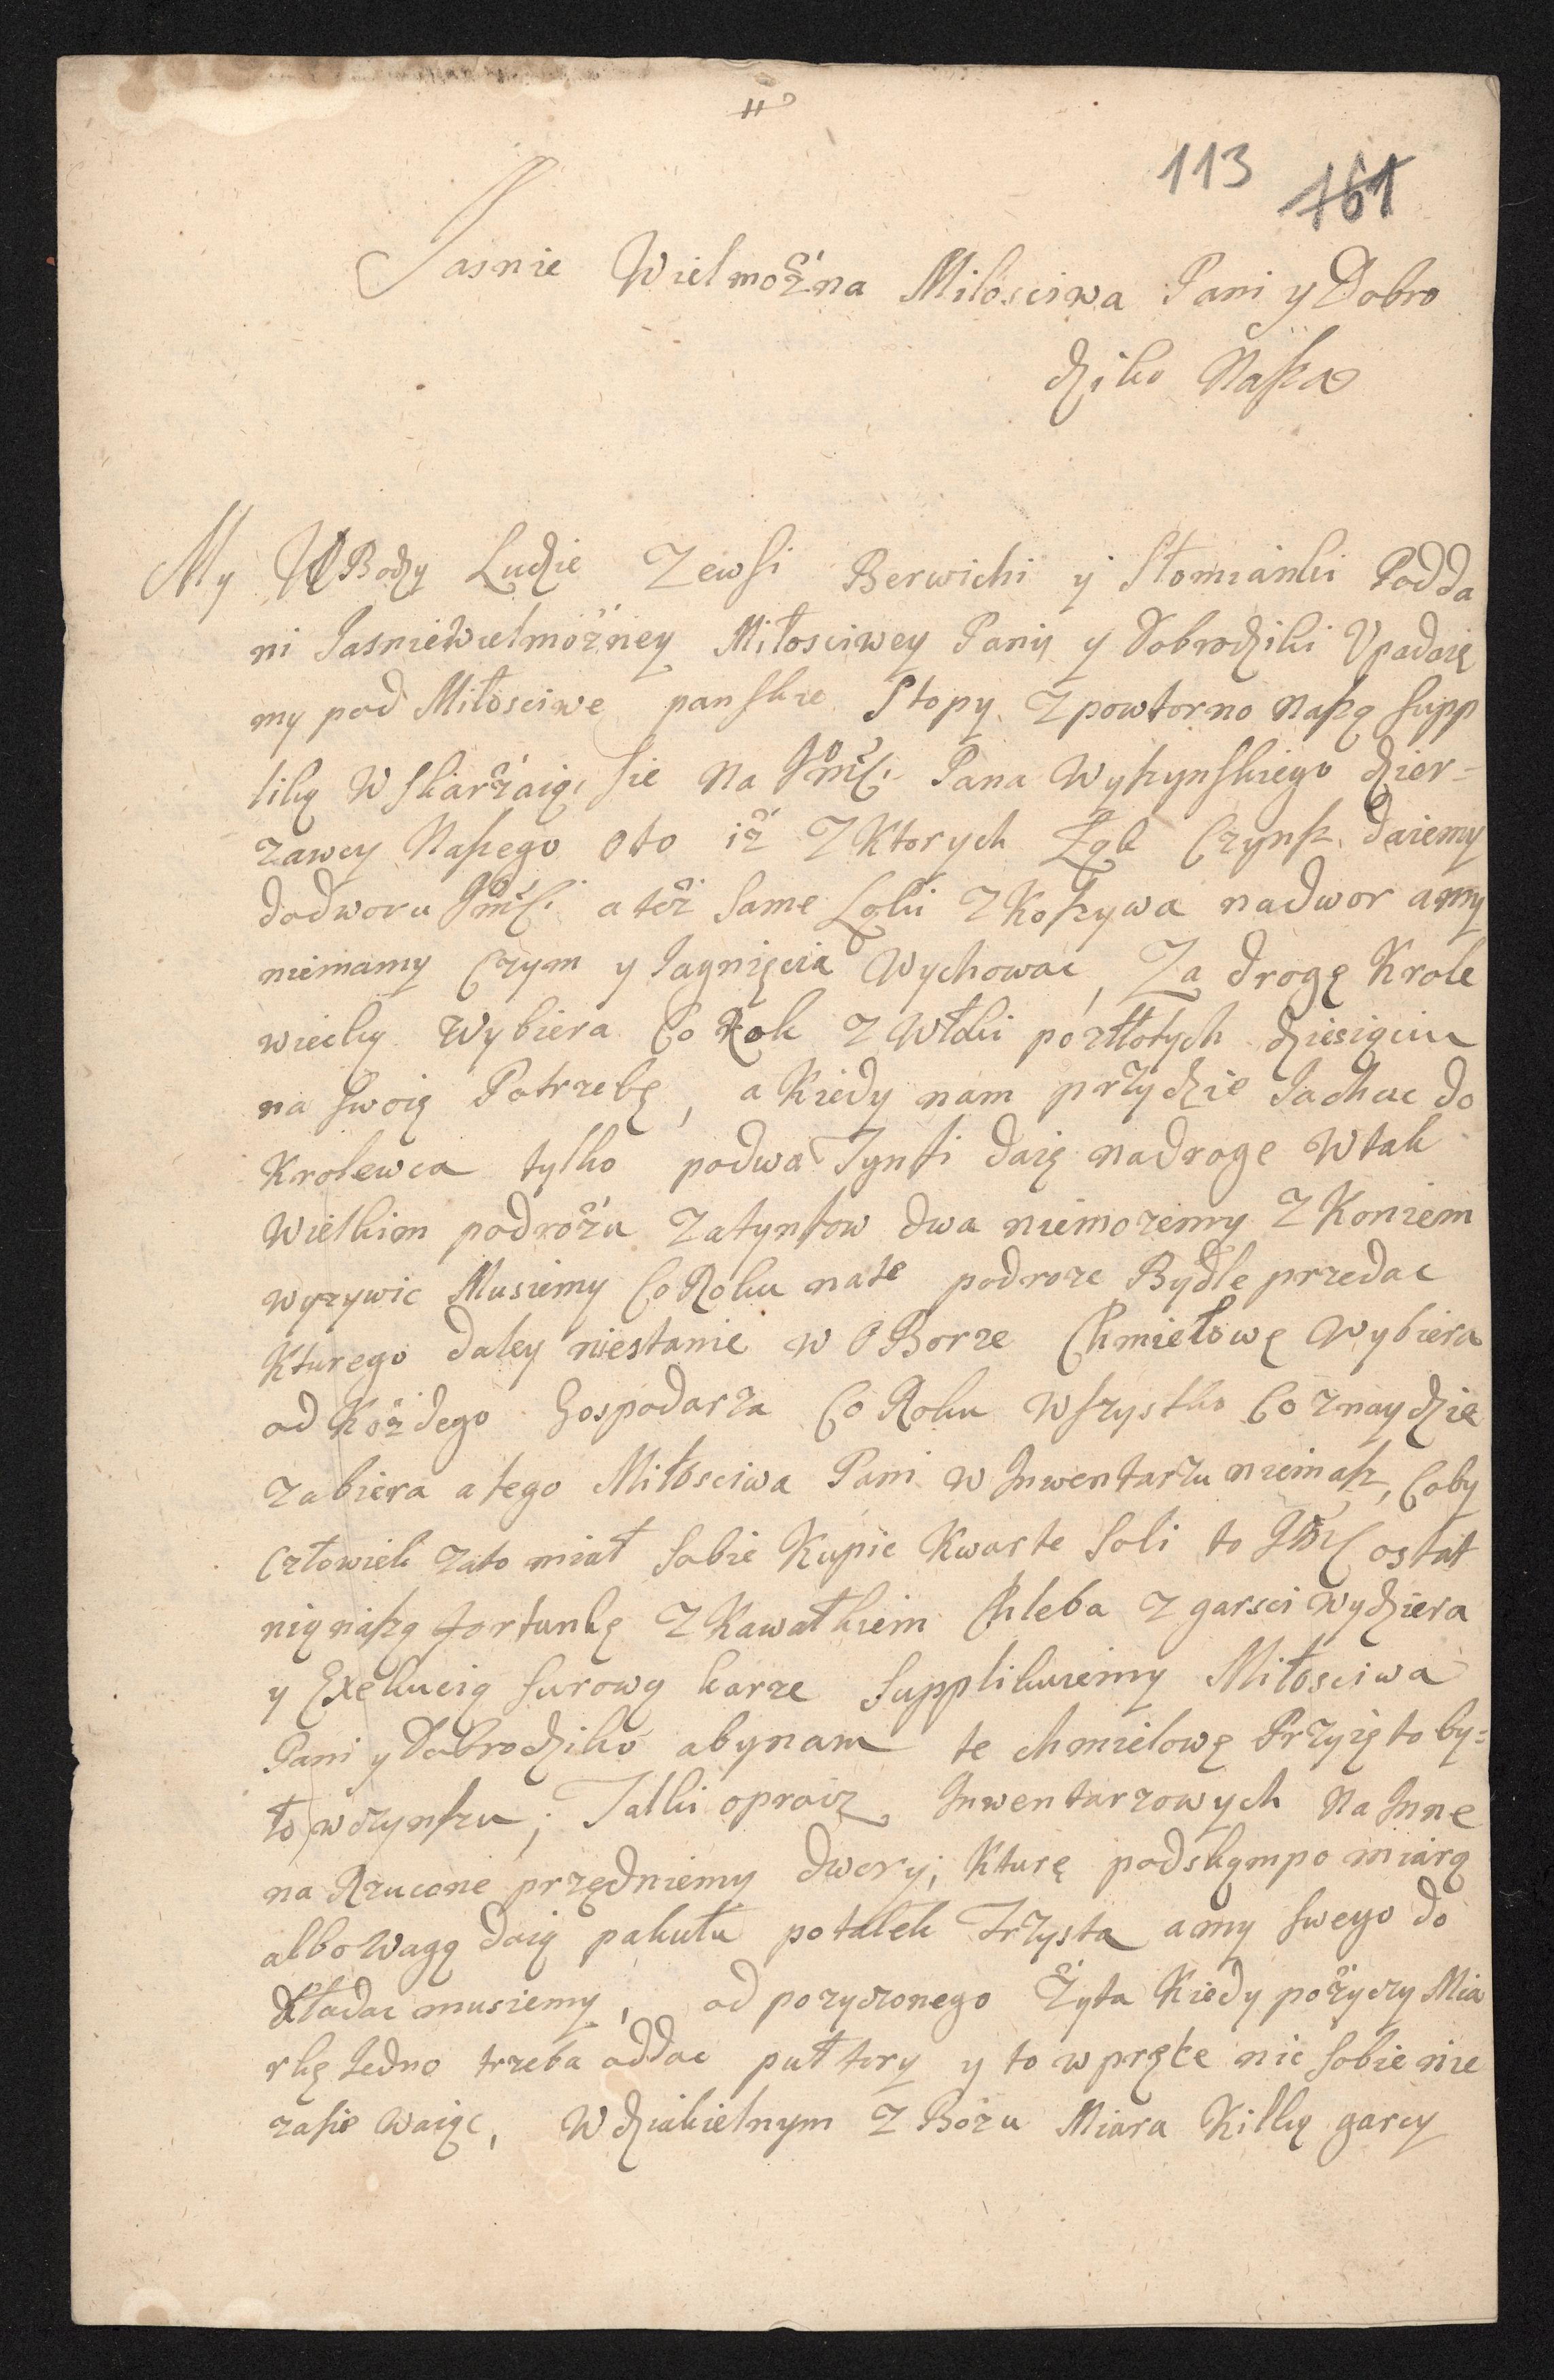 113 161
Jasnie Wielmożna Miłosciwa Pani y Dobro
dziko Nasza
My UBodzy Ludzie Zewsi Berwichi y Słomianki Podda
ni Jasniewielmożney Miłosciwey Paniy y Dobrodziki Upadaię
my pod Miłosciwe panskie Stopy Zpowtorno naszą supp
liką Wskarżaiąc sie na Jmści Pana Wyszynskiego dzier=
zawcy Naszego oto iż Zktorych Łąk Czynsz daiemy
dodworu Jmści a też same Łąki Zkoszywa nadwor amy
niemamy Czym y Jagnięcia Wychowac, Za drogę Krole
wiecką Wybiera Co Rok Z Włoki po złłotych dziesiąciu
na swoię Potrzebę, a Kiedy nam przydzie Jachac do
Krolewca tylko podwa Tynfi daię nadroge Wtak
Wielkim podrożu Zatynfow dwa niemozemy Z Koniem
wyzywic Musiemy Co Roku nate podroze Bydle przedac
Kturego daley niestanie w OBorze Chmielowę Wybiera
od Kożdego Gospodarza Co Roku Wszystko Co znaydzie
zabiera atego Miłosciwa Pani w Inwentarzu niemasz, Coby
Człowiek zato miał sobie Kupic Kwarte soli to Jmść ostat
nią naszą fortunkę ZKawałkiem Chleba Z garsci Wydziera
y Exekucią surową karze Supplikuiemy Miłosciwa
Pani y Dobrodziko abynam te chmielowę Przyięto by=
ło wczynszu; Talki oprocz Inwentarzowych Na Inne
na Rzucone przędniemy dwory; Kturę podskąmpo miarą
albo Wagą daią pakułu po talek Trzysta amy swego do
kładac musiemy, od pozyczonego Żyta Kiedy pożyczy Mia
rkę Jedno trzeba oddac pułtory y to wprętce nic sobie nie
zasie waiąc, Wdziakielnym Zbożu Miara Kilką garcy